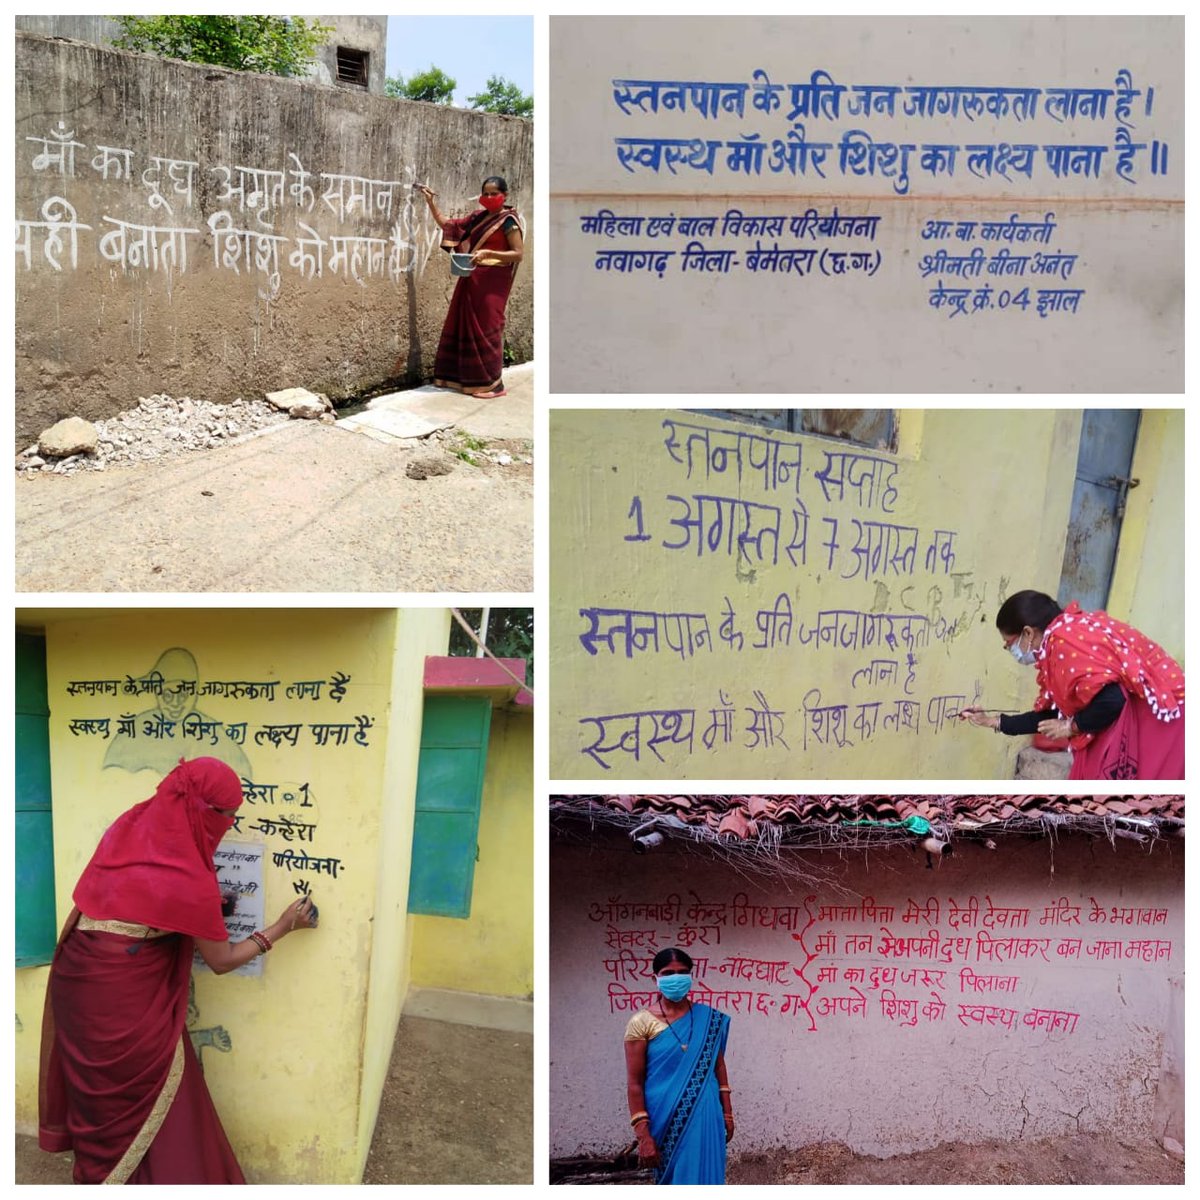 माँ का दूध अमृत के समान है
यही बनाता शिशु को महान है
स्तनपान के प्रति जन जागरूकता लाना है।
स्वस्थ माॅ और शिशु का लक्ष्य पाना है॥
महिला एवं बाल विकास परियोजना
नवागढ़ जिला - बेमेतरा (छ.ग.)
आ. बा. कार्यकर्ता
श्रीमती बीना अनंत
केन्द्र क्रं. 04 झाल
स्तनपान सप्ताह
1 अगस्त से 7 अगस्त तक
स्तनपान के प्रति जनजागरूकता
लाना है
स्वस्थ माँ और शिशू का लक्ष्य पाना
स्तनपान के प्रति जन जागरूकता लाना हैं
स्वस्थ माँ और शिशु का लक्ष्य पाना हैं
1
- कन्हेरा
परियोजना -
आँगनबाडी केन्द्र गिधवा
सेक्टर - कुंरा
नांदघाट
छ. ग.
माता पिता मेरी देवी देवता मंदिर के भगवान
माँ तन से अपनी दुध पिलाकर बन जाना महान
माँ का दुध जरूर पिलाना
अपने शिशु को स्वस्थ बनाना